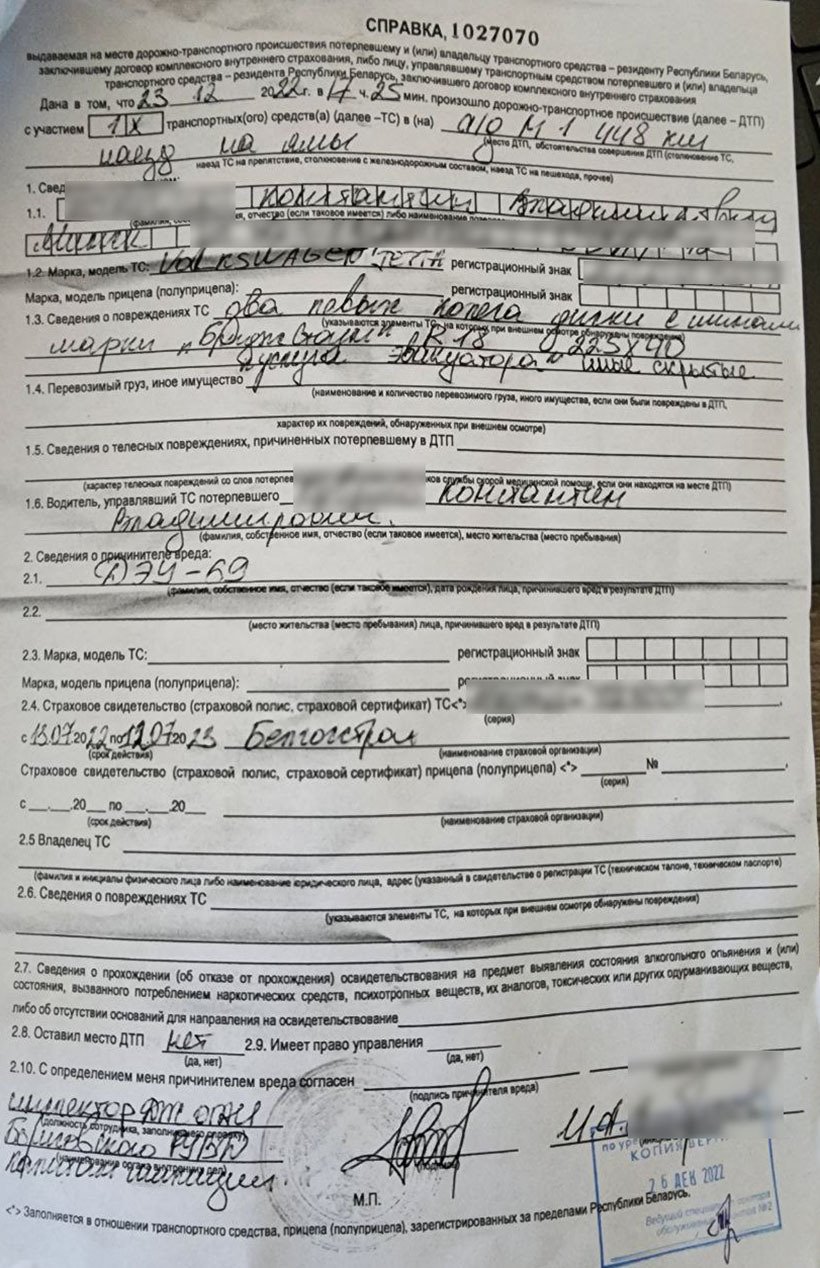 СПРАВКА, 1027070
выдаваемая на месте дорожно-транспортного происшествия потерпевшему и (или) владельцу транспортного средства – резиденту Республики Беларусь,
заключившему договор комплексного внутреннего страхования, либо лицу, управлявшему транспортным средством потерпевшего и (или) владельца
транспортного средства – резидента Республики Беларусь, заключившего договор комплексного внутреннего страхования
Дана в том, что 23 12 2022 г. в 14 ч. 25 мин. произошло дорожно-транспортное происшествие (далее – ДТП)
с участием 1 X транспортных(ого) средств(а) (далее –ТС) в (на) а/д М 1 448 км
(место ДТП, обстоятельства совершения ДТП (столкновение ТС,
наезд на ямы
наезд ТС на препятствие, столкновение с железнодорожным составом, наезд ТС на пешехода, прочее)
1. Свед
1.1. Константин Владимирович
отчество (если таковое имеется) либо наименование
Минск
1.2. Марка, модель ТС: VOLKSWAGEN JETTA регистрационный знак
Марка, модель прицепа (полуприцепа): регистрационный знак
1.3. Сведения о повреждениях ТС два левых колеса диски с шинами
(указываются элементы ТС, на которых при внешнем осмотре обнаружены повреждения)
марки "Бриджстоун" R18 225х40
услуга эвакуатора иные скрытые
1.4. Перевозимый груз, иное имущество
(наименование и количество перевозимого груза, иного имущества, если они были повреждены в ДТП,
характер их повреждений, обнаруженных при внешнем осмотре)
1.5. Сведения о телесных повреждениях, причиненных потерпевшему в ДТП
(характер телесных повреждений со слов потерпе ков службы скорой медицинской помощи, если они находятся на месте ДТП)
1.6. Водитель, управлявший ТС потерпевшего Константин
Владимирович.
(фамилия, собственное имя, отчество (если таковое имеется), место жительства (место пребывания)
2. Сведения о причинителе вреда:
2.1. ДЭУ-69
(фамилия, собственное имя, отчество (если таковое имеется), дата рождения лица, причинившего вред в результате ДТП)
2.2.
(место жительства (место пребывания) лица, причинившего вред в результате ДТП)
2.3. Марка, модель ТС: регистрационный знак
Марка, модель прицепа (полуприцепа): знак
2.4. Страховое свидетельство (страховой полис, страховой сертификат) ТС<*>
(серия)
с 13.07.2022 по 12.07.2023 Белгосстрах
(срок действия) (наименование страховой организации)
Страховое свидетельство (страховой полис, страховой сертификат) прицепа (полуприцепа) <*> №
(серия)
с __.__.20__ по __.__.20__
(срок действия) (наименование страховой организации)
2.5 Владелец ТС
(фамилия и инициалы физического лица либо наименование юридического лица, адрес (указанный в свидетельстве о регистрации ТС (техническом талоне, техническом паспорте)
2.6. Сведения о повреждениях ТС
(указываются элементы ТС, на которых при внешнем осмотре обнаружены повреждения)
2.7. Сведения о прохождении (об отказе от прохождения) освидетельствования на предмет выявления состояния алкогольного опьянения и (или)
состояния, вызванного потреблением наркотических средств, психотропных веществ, их аналогов, токсических или других одурманивающих веществ,
либо об отсутствии оснований для направления на освидетельствование
2.8. Оставил место ДТП нет 2.9. Имеет право управления
(да, нет) (да, нет)
2.10. С определением меня причинителем вреда согласен
(подпись причинителя вреда)
инспектор
(должность сотрудника, заполнившего справку)
Борисовского РУВД
(наименование органа внутренних дел)
капитан милиции
(подпись)
И.А.
М.П.
КОПИЯ ВЕРНА
26 ДЕК 2022
Ведущий специалист сектора
обслуживания клиентов №2
<*> Заполняется в отношении транспортного средства, прицепа (полуприцепа), зарегистрированных за пределами Республики Беларусь.